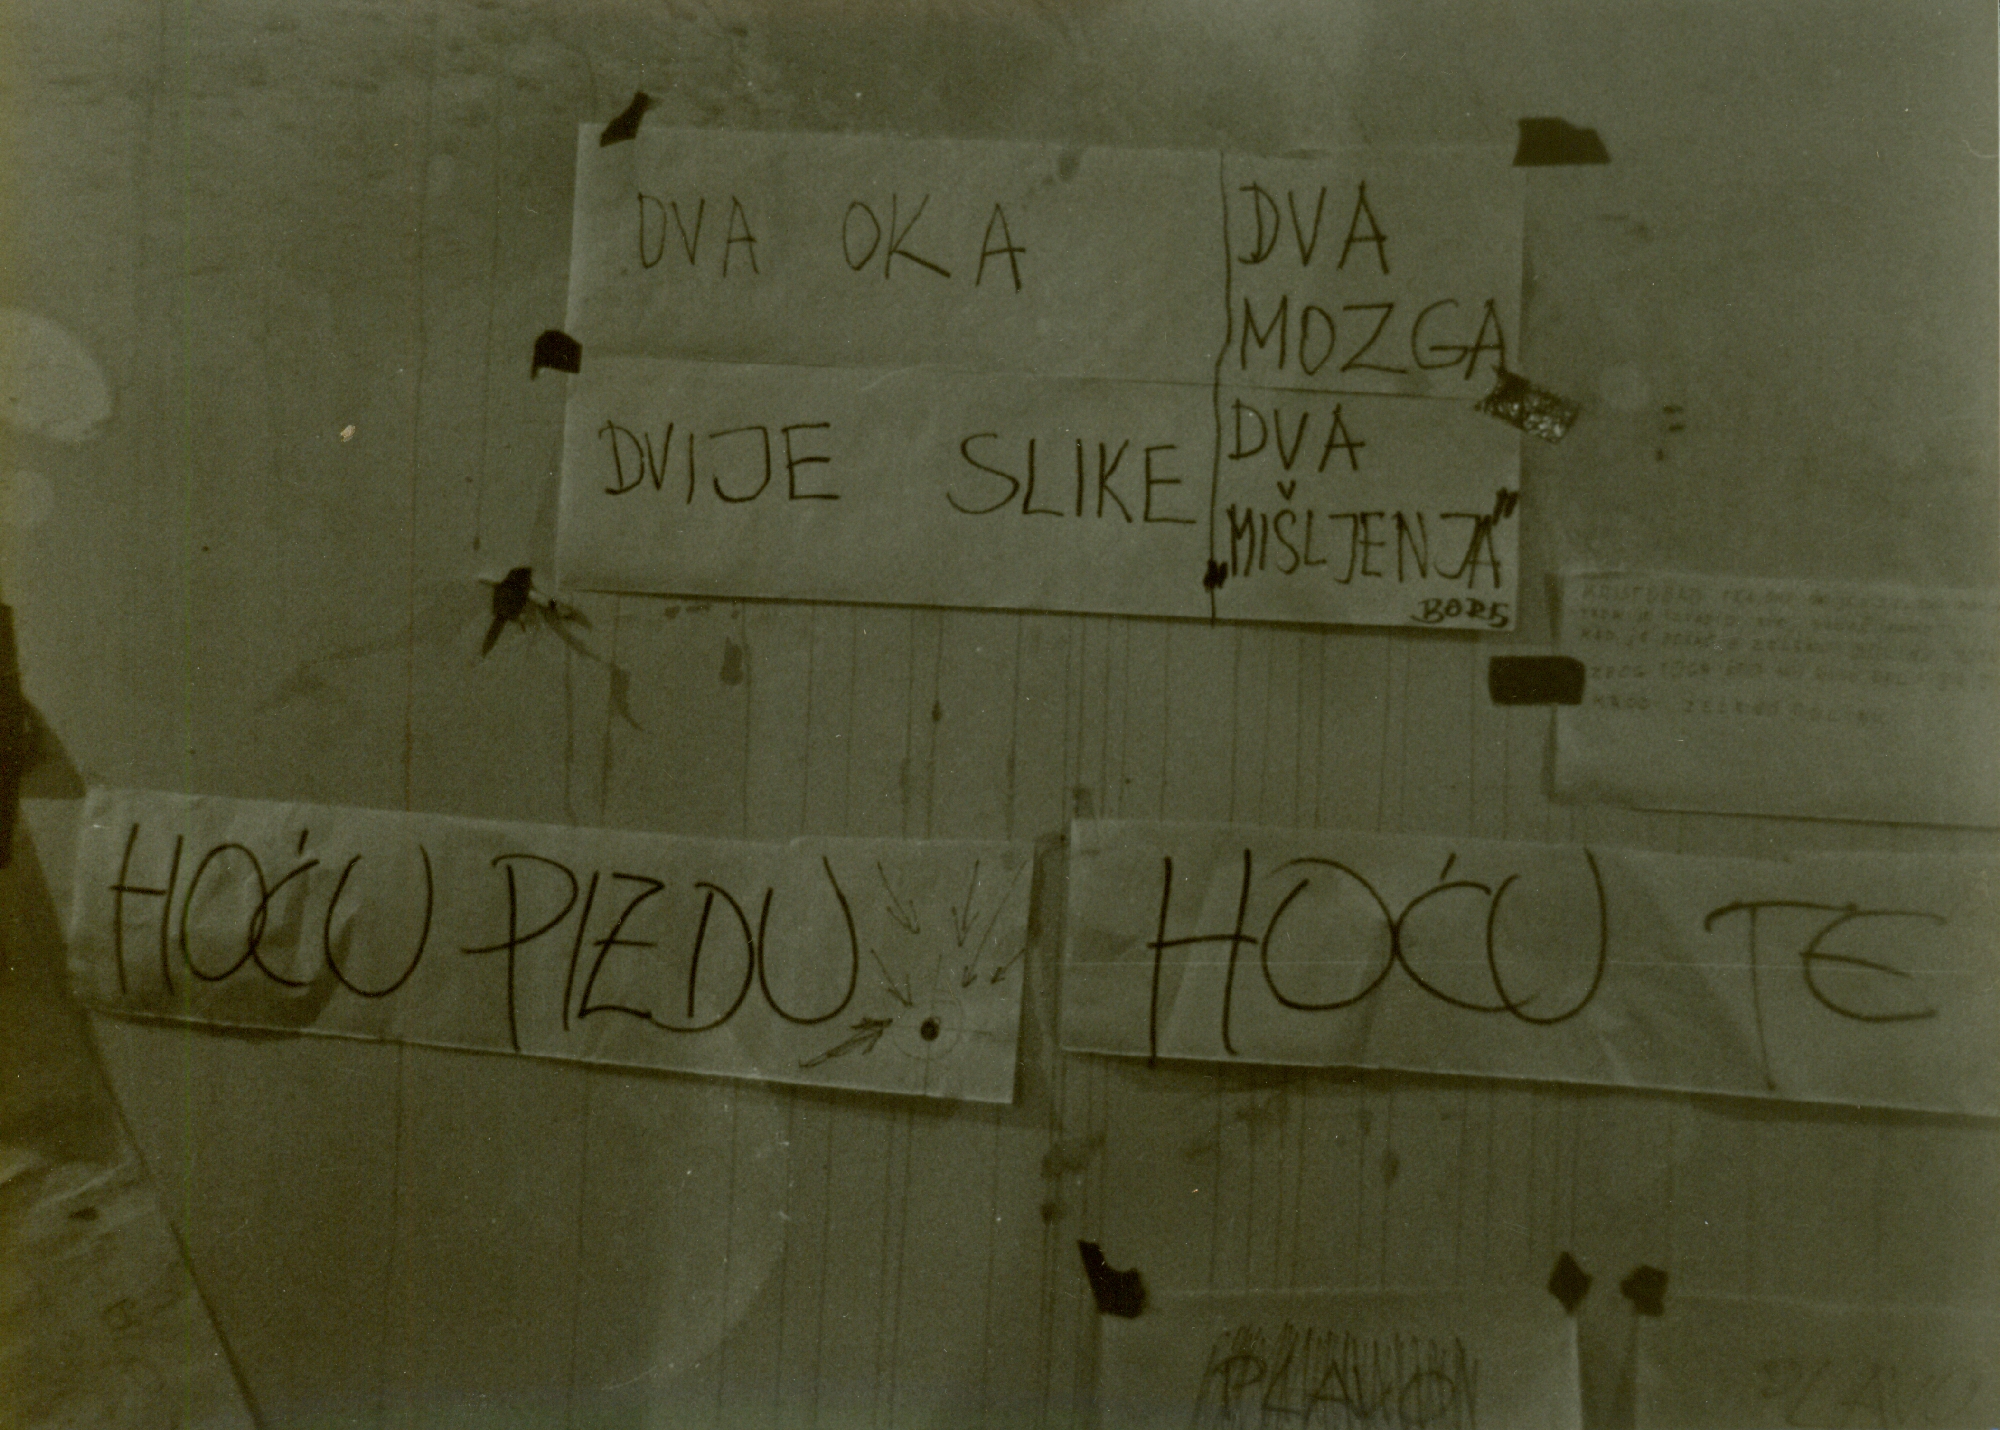 DVA OKA
DVA
MOZGA
DVIJE SLIKE
DVA
„MIŠLJENJA”
BORS
HOĆU PIZDU
HOĆU TE
PLAVO
PLAVO